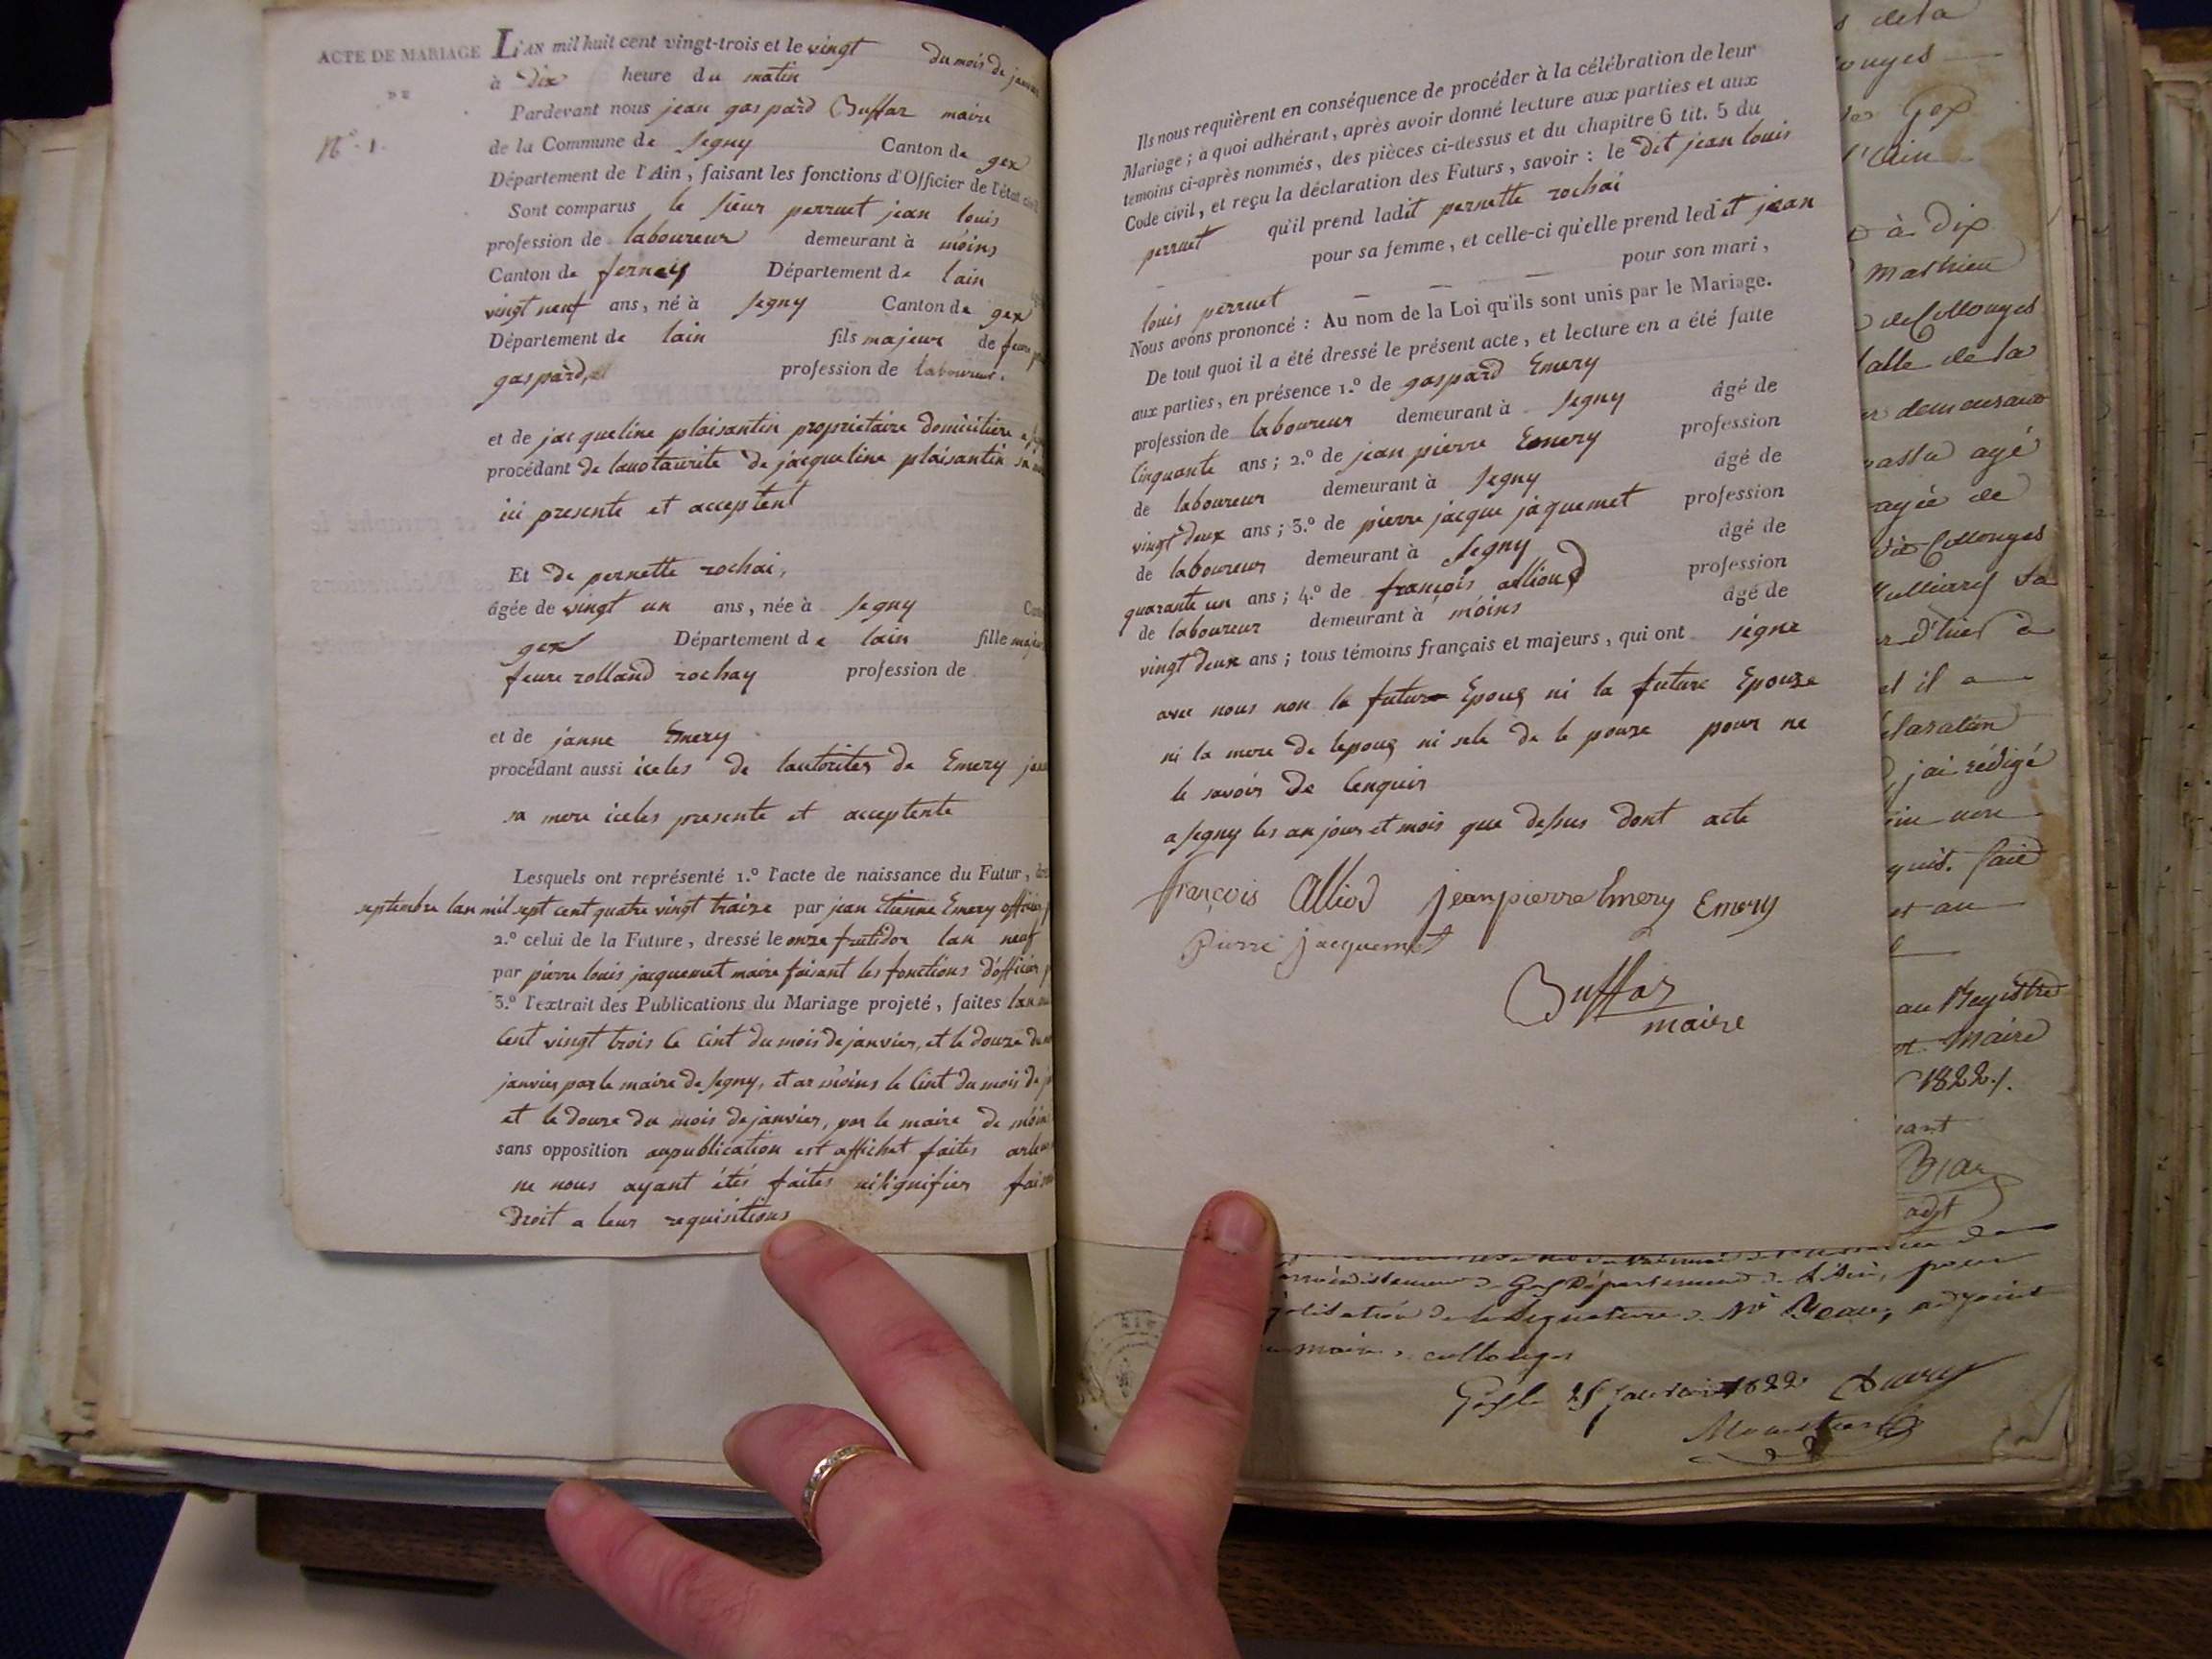 ACTE DE MARIAGE
DE
N.º 1.
L'AN mil huit cent vingt-trois et le vingt du mois de janvier
à dix heure du matin
Pardevant nous jean gaspard Buffaz maire
de la Commune de Segny Canton de gex
Département de l'Ain, faisant les fonctions d'Officier de l'état civil
Sont comparus le sieur perruet jean louis
profession de laboureur demeurant à móins
Canton de ferney Département de lain
vingt neuf ans, né à Segny Canton de gex
Département de lain fils majeur de feure
gaspard, profession de laboureur.
et de jacqueline plaisantin proprietaire domicilière
procédant de lauotaurite de jacqueline plaisantin sa
ici presente et acceptent
Et de pernette rochai,
âgée de vingt un ans, née à Segny
gex Département de lain fille
feure rolland rochay profession de
et de janne Emery
procédant aussi iceles de lautorites de Emery
sa mere iceles presente et acceptente
Lesquels ont représenté 1.º l'acte de naissance du Futur,
septembre lan mil sept cent quatre vingt traize par jean Etienne Emery officier
2.º celui de la Future, dressé le onze frutidor lan neuf
par pierre louis jacquemet maire faisant les fonctions d'officier
3.º l'extrait des Publications du Mariage projeté, faites lan
Cent vingt trois le Cint du mois de janvier, et le douze du
janvier par le maire de Segny, et ar móins le Cint du mois de
et le douze du mois de janvier, par le maire de móins
sans opposition aupublication est affichet faites
ne nous ayant étés faites nisignifier
droit a leur requisitions
Ils nous requièrent en conséquence de procéder à la célébration de leur
Mariage; à quoi adhérant, après avoir donné lecture aux parties et aux
temoins ci-après nommés, des pièces ci-dessus et du chapitre 6 tit. 5 du
Code civil, et reçu la déclaration des Futurs, savoir : le dit jean louis
perruet qu'il prend ladit pernette rochai
pour sa femme, et celle-ci qu'elle prend ledit jean
louis perruet pour son mari,
Nous avons prononcé : Au nom de la Loi qu'ils sont unis par le Mariage.
De tout quoi il a été dressé le présent acte, et lecture en a été faite
aux parties, en présence 1.º de gaspard Emery
profession de laboureur demeurant à Segny âgé de
Cinquante ans; 2.º de jean pierre Emery profession
de laboureur demeurant à Segny âgé de
vingt deux ans; 3.º de pierre jacque jaquemet profession
de laboureur demeurant à Segny âgé de
quarante un ans; 4.º de françois alliod profession
de laboureur demeurant à móins âgé de
vingt deux ans; tous témoins français et majeurs, qui ont signe
avec nous non le future Epoug ni la future Epouze
ni la mere de lepoug ni sele de le pouze pour ne
le savoir de Cenquir
a Segny les an jour et mois que dessus dont acte
françois Alliod jeanpierre Emery Emery
Pierre Jacquemet
Buffaz
maire
dela
Gex
l'Ain
à dix
Mathieu
de Collonges
de la
demeurant
agé
agée de
Collonges
et il a
j'ai rédigé
au Registre
Maire
1822./.
adjt
Gex Département de l'Ain, pour
la signature de Mr adjoint
Collonges
Gex le 25 1822